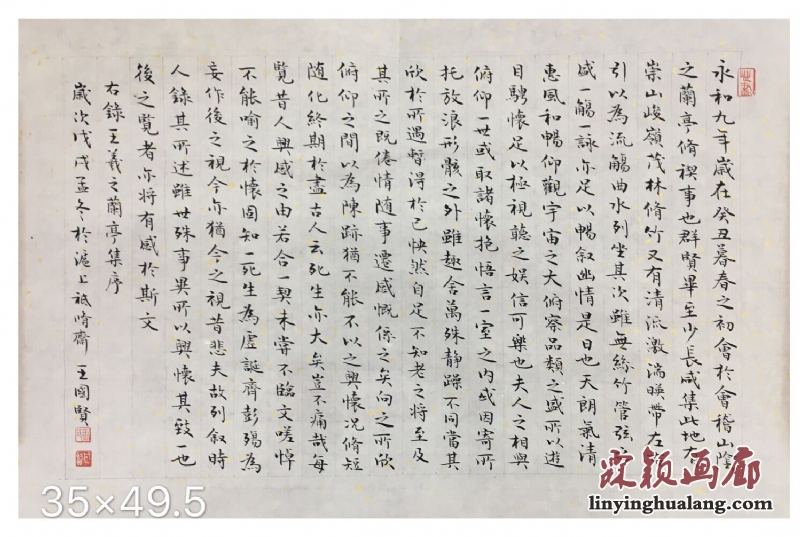 永和九年歲在癸丑暮春之初會於會稽山陰
之蘭亭脩禊事也群賢畢至少長咸集此地有
崇山峻嶺茂林脩竹又有清流激湍暎帶左右
引以為流觴曲水列坐其次雖無絲竹管弦之
盛一觴一詠亦足以暢敘幽情是日也天朗氣清
惠風和暢仰觀宇宙之大俯察品類之盛所以遊
目騁懷足以極視聽之娱信可樂也夫人之相與
俯仰一世或取諸懷抱悟言一室之内或因寄所
托放浪形骸之外雖趣舍萬殊静躁不同當其
欣於所遇暫得於己怏然自足不知老之將至及
其所之既倦情隨事遷感慨係之矣向之所欣
俯仰之間以為陳跡猶不能不以之興懷況脩短
随化終期於盡古人云死生亦大矣豈不痛哉每
覽昔人興感之由若合一契未嘗不臨文嗟悼
不能喻之於懷固知一死生為虛誕齊彭殤為
妄作後之視今亦猶今之視昔悲夫故列敘時
人錄其所述雖世殊事異所以興懷其致一也
後之覽者亦將有感於斯文
右錄王羲之蘭亭集序
歲次戊戌孟冬於滬上祗脩齋 王國賢
35×49.5
霖颖画廊
linyinghualang.com